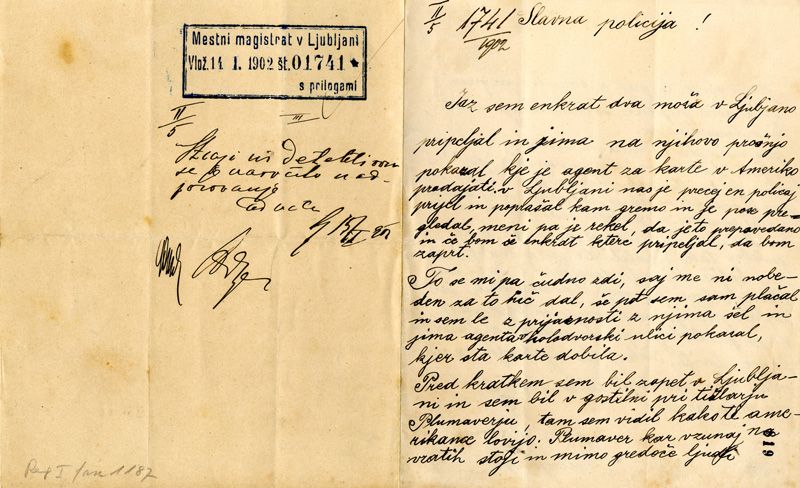 Mestni magistrat v Ljubljani
Vlož. 14 1. 1902 št. 01741
s prilogami
II/5
III
se naročilo nad-
G 15/I 902
Reg I fasc 1187
II/5 1741/1902 Slavna policija!
Jaz sem enkrat dva moša v Ljubljano
pripeljal in jima na njihovo prošnjo
pokazal kje je agent za karte v Ameriko
prodajati. V Ljubljani nas je precej en policaj
prijel in poprašal kam gremo in je pre-
gledal, meni pa je rekel, da je to prepovedano
in če bom še enkrat ktere pripeljal, da bom
zaprt.
To se mi pa čudno zdi, saj me ni nobe-
den za to nič dal, še pot sem sam plačal
in sem le z prijaznosti z njima šel in
jima agenta v kolodvorski ulici pokazal,
kjer sta karte dobila.
Pred kratkem sem bil zopet v Ljublja-
ni in sem bil v gostilni pri tišlarju
Plumaverju, tam sem vidil kako te ame-
rikance lovijo. Plumaver kar vzunaj na
vratih stoji in mimo gredoče ljudi
019